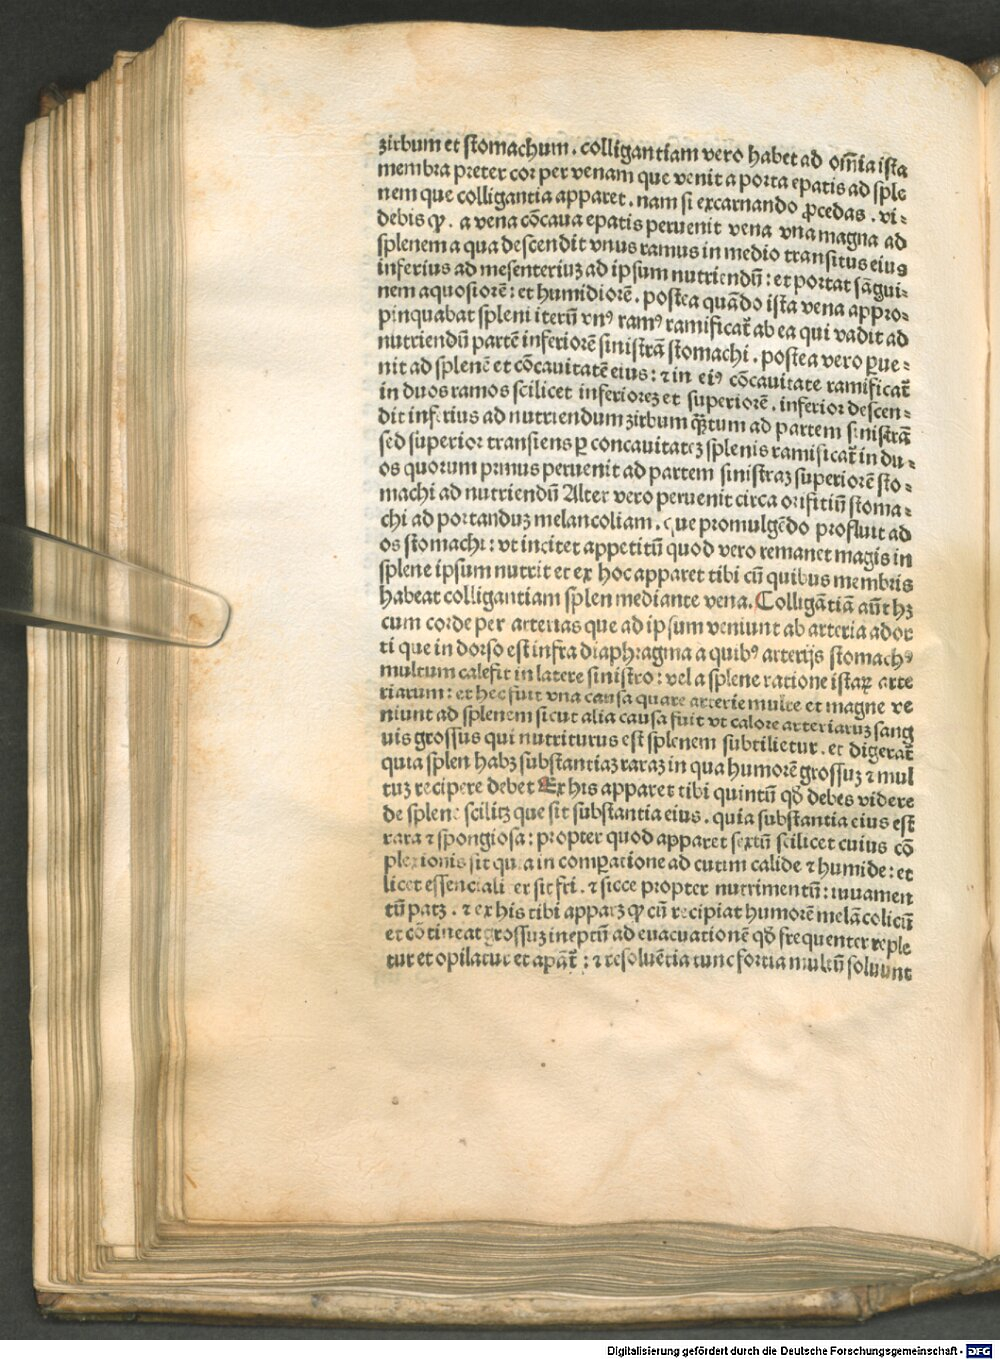 zirbum et stomachum. colligantiam vero habet ad om̄ia ista
membra preter cor per venam que venit a porta epatis ad sple
nem que colligantia apparet. nam si excarnando ꝓcedas. vi-
debis ꝙ. a vena cōcaua epatis peruenit vena vna magna ad
splenem a qua descendit vnus ramus in medio transitus eius
inferius ad mesenteriuꝫ ad ipsum nutriendū: et portat sāgui-
nem aquosiorē: et humidiorē. postea quādo ista vena appro-
pinquabat spleni iterū vnꝰ ramꝰ ramificat̄ ab ea qui vadit ad
nutriendū partē inferiorē sinistrā stomachi. postea vero ꝑue-
nit ad splenē et cōcauitatē eius: ⁊ in eiꝰ cōcauitate ramificat̄
in duos ramos scilicet inferioreꝫ et superiorē. inferior descen-
dit inferius ad nutriendum zirbum q̄ꝫtum ad partem sinistrā
sed superior transiens ꝑ concauitateꝫ splenis ramificat̄ in du-
os quorum primus peruenit ad partem sinistraꝫ superiorē sto-
machi ad nutriendū Alter vero peruenit circa orifitiū stoma-
chi ad portanduꝫ melancoliam. que promulgēdo profluit ad
os stomachi: vt incitet appetitū quod vero remanet magis in
splene ipsum nutrit et ex hoc apparet tibi cū quibus membris
habeat colligantiam splen mediante vena. Colligātiā aūt hꝫ
cum corde per arterias que ad ipsum veniunt ab arteria ador
ti que in dorso est infra diaphragma a quibꝰ arterijs stomachꝰ
multum calefit in latere sinistro: vel a splene ratione istaꝝ arte
riarum: et hec fuit vna causa quare arterie multe et magne ve
niunt ad splenem sicut alia causa fuit vt calore arteriaruꝫ sang
uis grossus qui nutriturus est splenem subtilietur. et digerat̄
quia splen habꝫ substantiaꝫ raraꝫ in qua humorē grossuꝫ ⁊ mul
tuꝫ recipere debet Ex his apparet tibi quintū qđ debes videre
de splene scilitꝫ que sit substantia eius. quia substantia eius est
rara ⁊ spongiosa: propter quod apparet sextū scilicet cuius cō
plexionis sit quia in comparatione ad cutim calide ⁊ humide: et
licet essencialiter sit fri. ⁊ sicce propter nutrimentū: iuuamen
tū patꝫ. ⁊ ex his tibi apparꝫ ꝙ cū recipiat humorē melācolicū
et cōtineat grossuꝫ ineptū ad euacuationē qđ frequenter reple
tur et opilatur et apat̄: ⁊ resoluētia tunc fortia multū soluunt
Digitalisierung gefördert durch die Deutsche Forschungsgemeinschaft - DFG